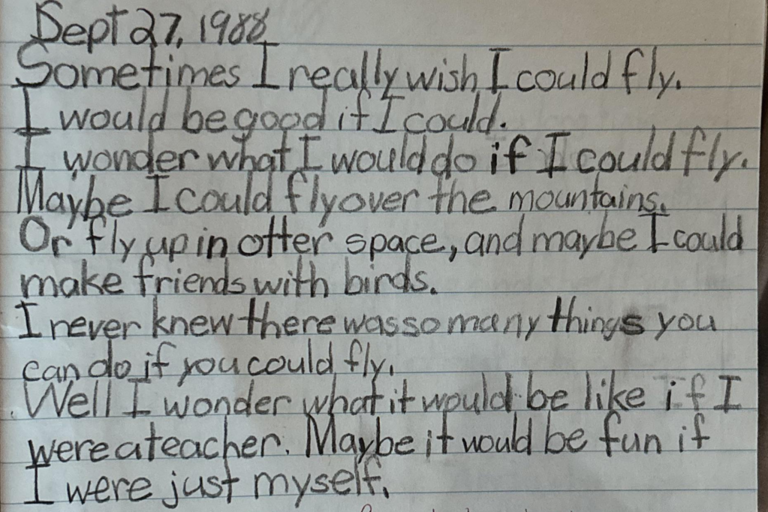 Sept 27, 1988
Sometimes I really wish I could fly.
I would be good if I could.
I wonder what I would do if I could fly.
Maybe I could fly over the mountains.
Or fly up in otter space, and maybe I could
make friends with birds.
I never knew there was so many things you
can do if you could fly.
Well I wonder what it would be like if I
were a teacher. Maybe it would be fun if
I were just myself.